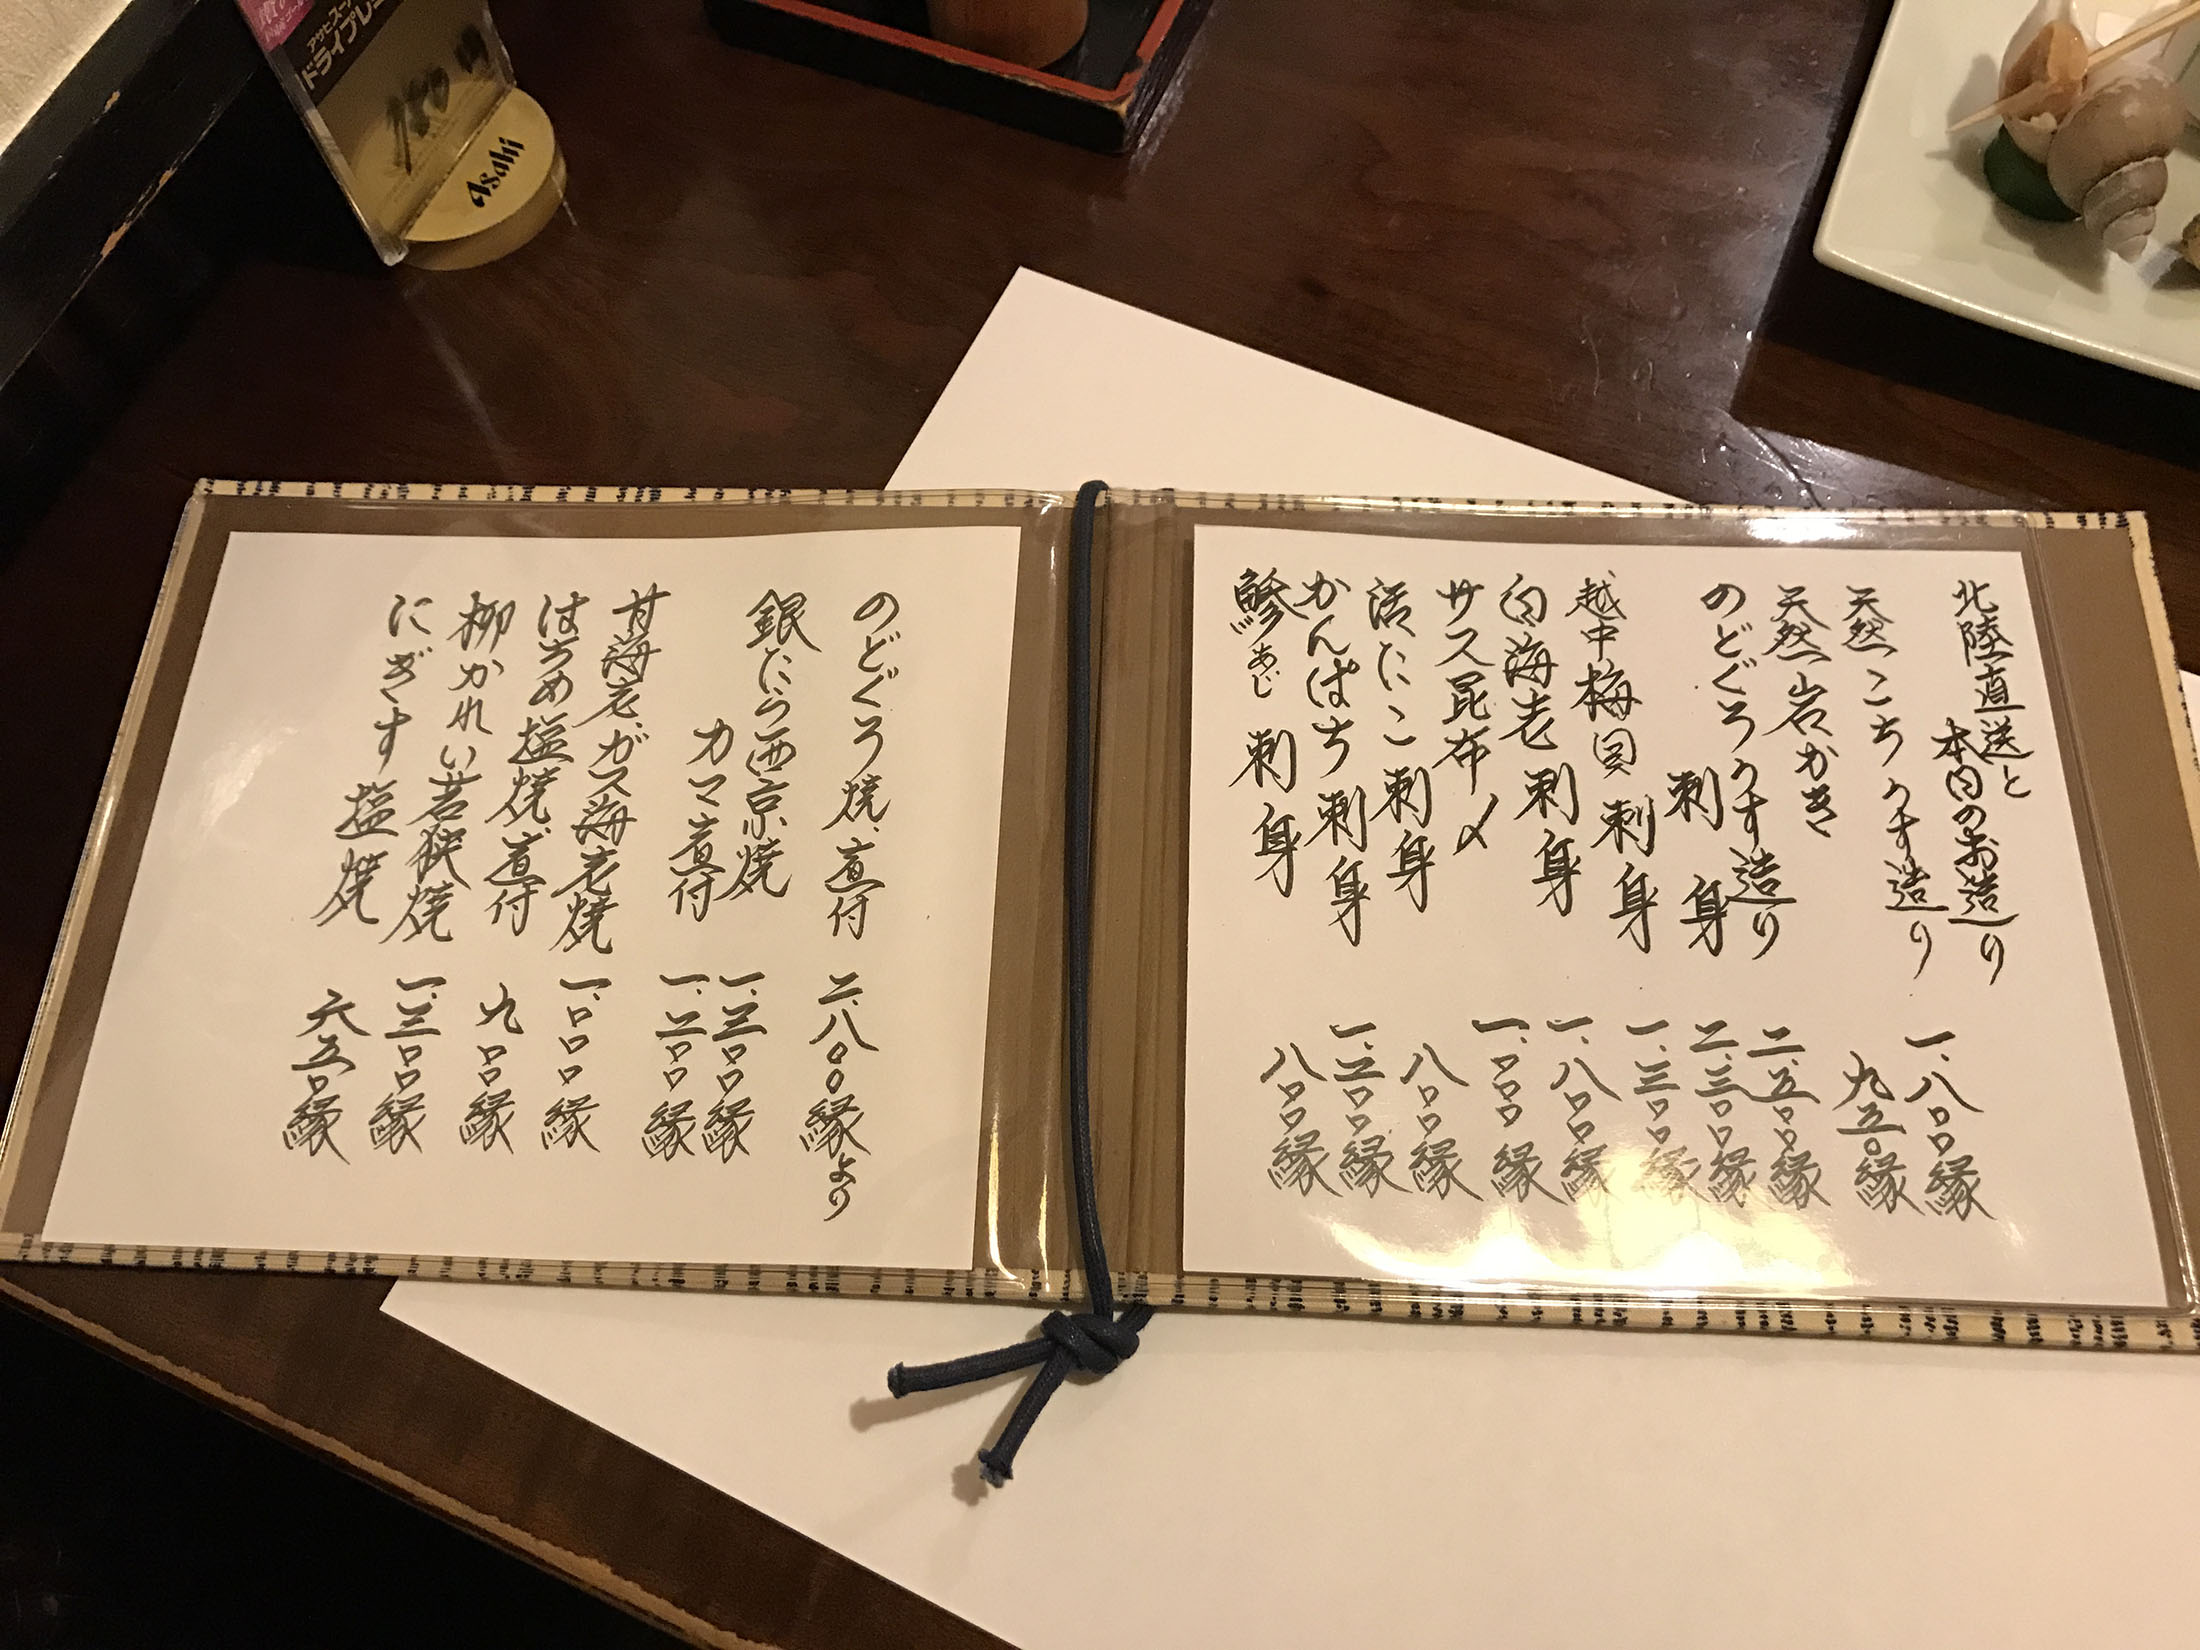 北陸直送と
本日のお造り
天然こち うす造り 一、八〇〇縁
天然岩かき 九五〇縁
のどぐろうす造り 二、五〇〇縁
刺身 二、三〇〇縁
越中梅貝 刺身 一、三〇〇縁
白海老 刺身 一、八〇〇縁
サス昆布〆 一、〇〇〇縁
活たこ 刺身 八〇〇縁
かんぱち 刺身 一、二〇〇縁
鯵あじ 刺身 八〇〇縁
のどぐろ焼、煮付 二、八〇〇縁より
銀たら西京焼 一、三〇〇縁
カマ煮付 一、二〇〇縁
甘海老、ガス海老焼 一、〇〇〇縁
はちめ塩焼、煮付 九〇〇縁
柳かれい若狭焼 一、三〇〇縁
にぎす 塩焼 六五〇縁
アサヒスー
ドライプレミ
Asahi